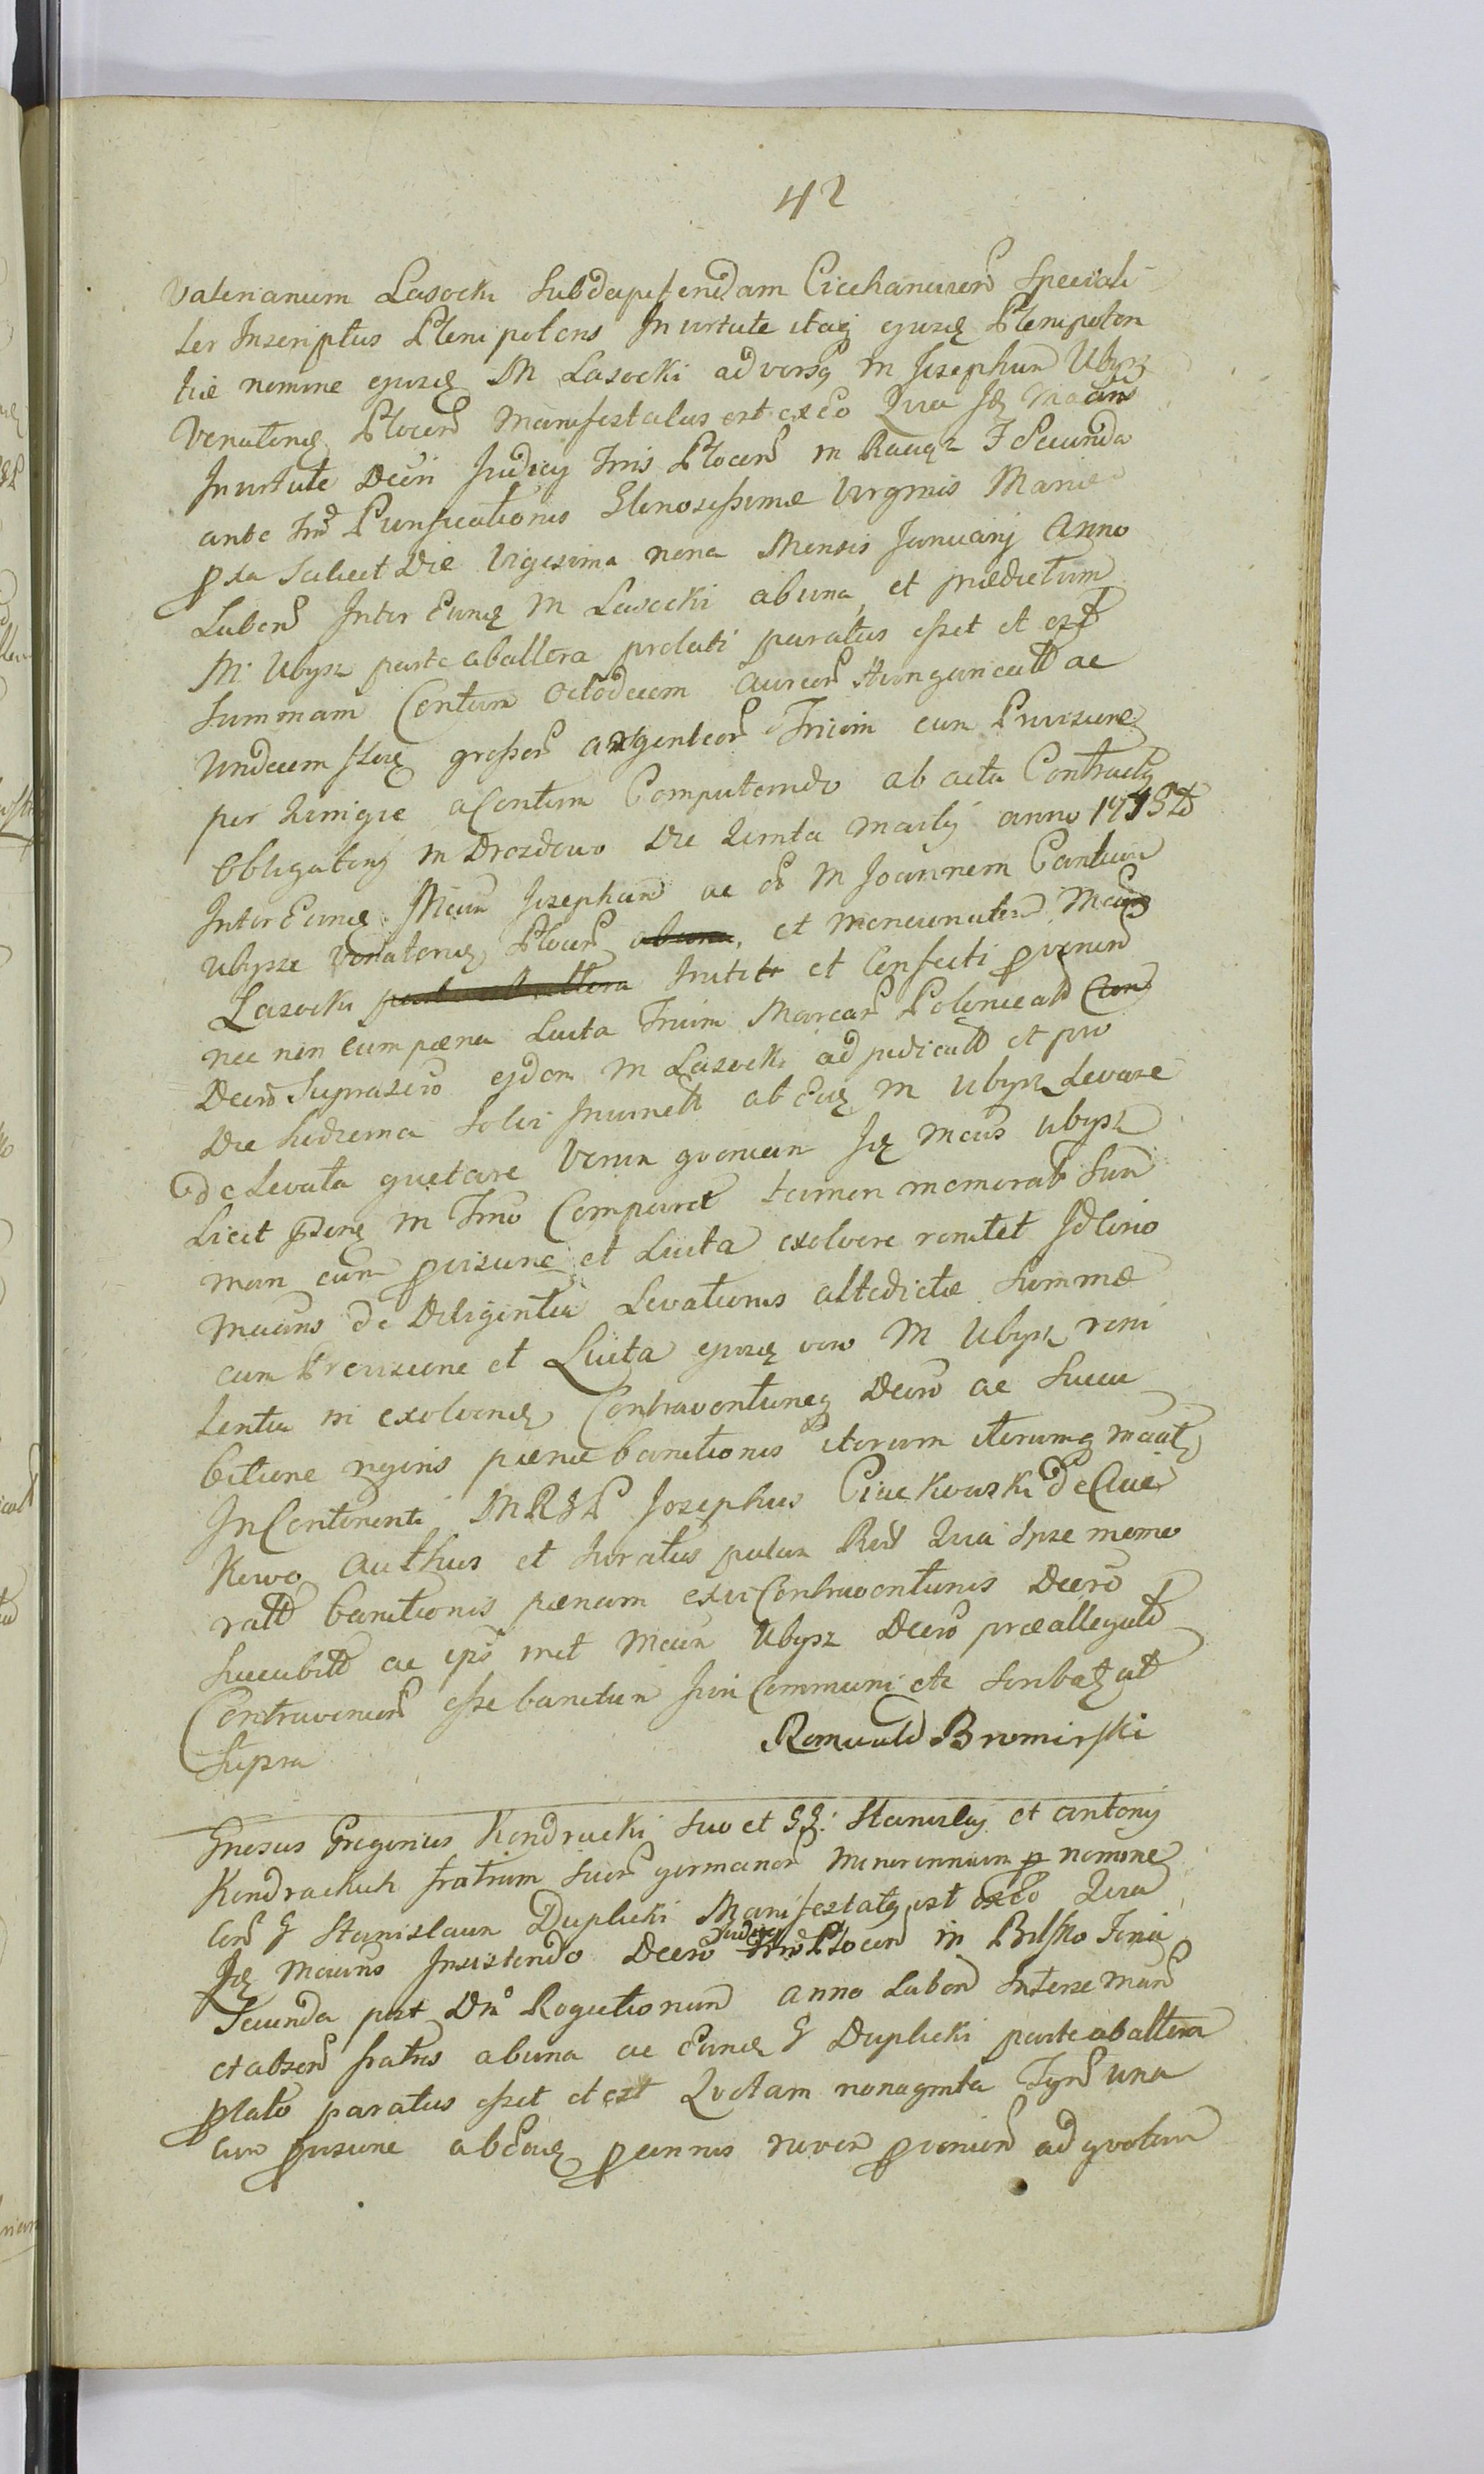 42
Valerianum Lasocki Subdapiferidam Ciechanuren Speciali
ter Inscriptus Plenipotens In virtute itaq ejusq Plenipoten
tiæ nomine ejusq M Lasocki adversq M Josephum Ubysz
Venatorę Plocen Manifestatus est exeo Quia Idę Macans
In virtute Decri Judicy Tris Plocen in Raciąz F Secunda
ante Fm Purificationis Glinosissimæ Virginis Mariæ
pxta Scilicet Die Vigesima nona Mensis January Anno
Laben Inter Eundę M Lasocki ab una et prædictum
M. Ubysz parte ab altera prolati paratus esset et est
Summam Centum Octodecem Aureor Hungaricall ac
Undecem Itemq grossor argenteor Trium cum Provisione
per quinque a Centum Computando ab acta Contractq
Obligatory in Drozdowo Die Quinta Marty anno 1775to
Inter Eundę Mcum Josephum ac ol M Joannem Cantium
Ubysze Venatorę Plocen ab una, et Mencionatum Mcum
Lasocki parte ab altera Initi et Confecti proven
nec non cum pæna Lucta Trium Marcar Polonicall Con
Decro Suprascro ejdem M Lasocki adjudicall et pro
Die hodierna Solvi Injunctt ab Euę M Ubysz Levare
de Levata quetare Verum quoniam Idę Mcus Ubysz
Licet psonę in Tmo Comparet tamen memorat Sum
mam cum pvisione et Lucta exolvere renitet Idcirco
Mcans de Diligentia Levationis altedictæ Summæ
cum Provisione et Lucta ejusq vero M Ubysz reni
tentia in exolvenę Contraventioneq Decro ac Succu
bitione rigoris pœnæ banitionis iterum iterumq mant
In Continenti MRGP Josephus Ciackowski de Ciec
Kowo Authus et Juratus palam Rest Quia Ipse memo
ratt banitionis pœnam ex vi Contraventionis Decro
Succubitt ac ips met Mcum Ubysz Decro præallegatt
Contravenien esse banitum Jun Communi etc Scribat ut
Supra
Romuald Bromirski
Gnosus Gregorius Kendracki Suo et GG: Stanislaj et Antony
Kendrackich fratrum Suor germanor Minorennium p nomine
Con G Stanislaum Duplicki Manifestatq est exeo Quia
Idę Mcans Insistendo Decro Judicy Tris Plocen in Bilsko Feria
Secunda post Dm Rogationum anno Laben Inter se Man
et absen fratres ab una ac Eundę G Duplicki parte ab altera
plato paratus esset et est Quotam nonaginta Tynf una
cum pvisione ab Eadę p annos novem provenien adquotam